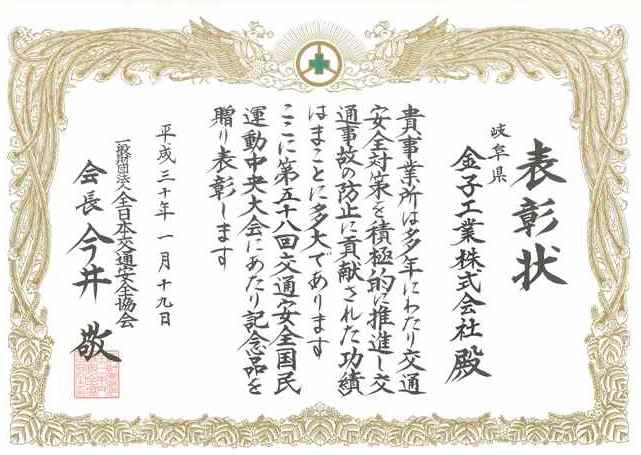 表彰状
岐阜県
金子工業株式会社殿
貴事業所は多年にわたり交通
安全対策を積極的に推進し交
通事故の防止に貢献された功績
はまことに多大であります
ここに第五十八回交通安全国民
運動中央大会にあたり記念品を
贈り表彰します
平成三十年一月十九日
一般財団法人全日本交通安全協会
会長今井敬